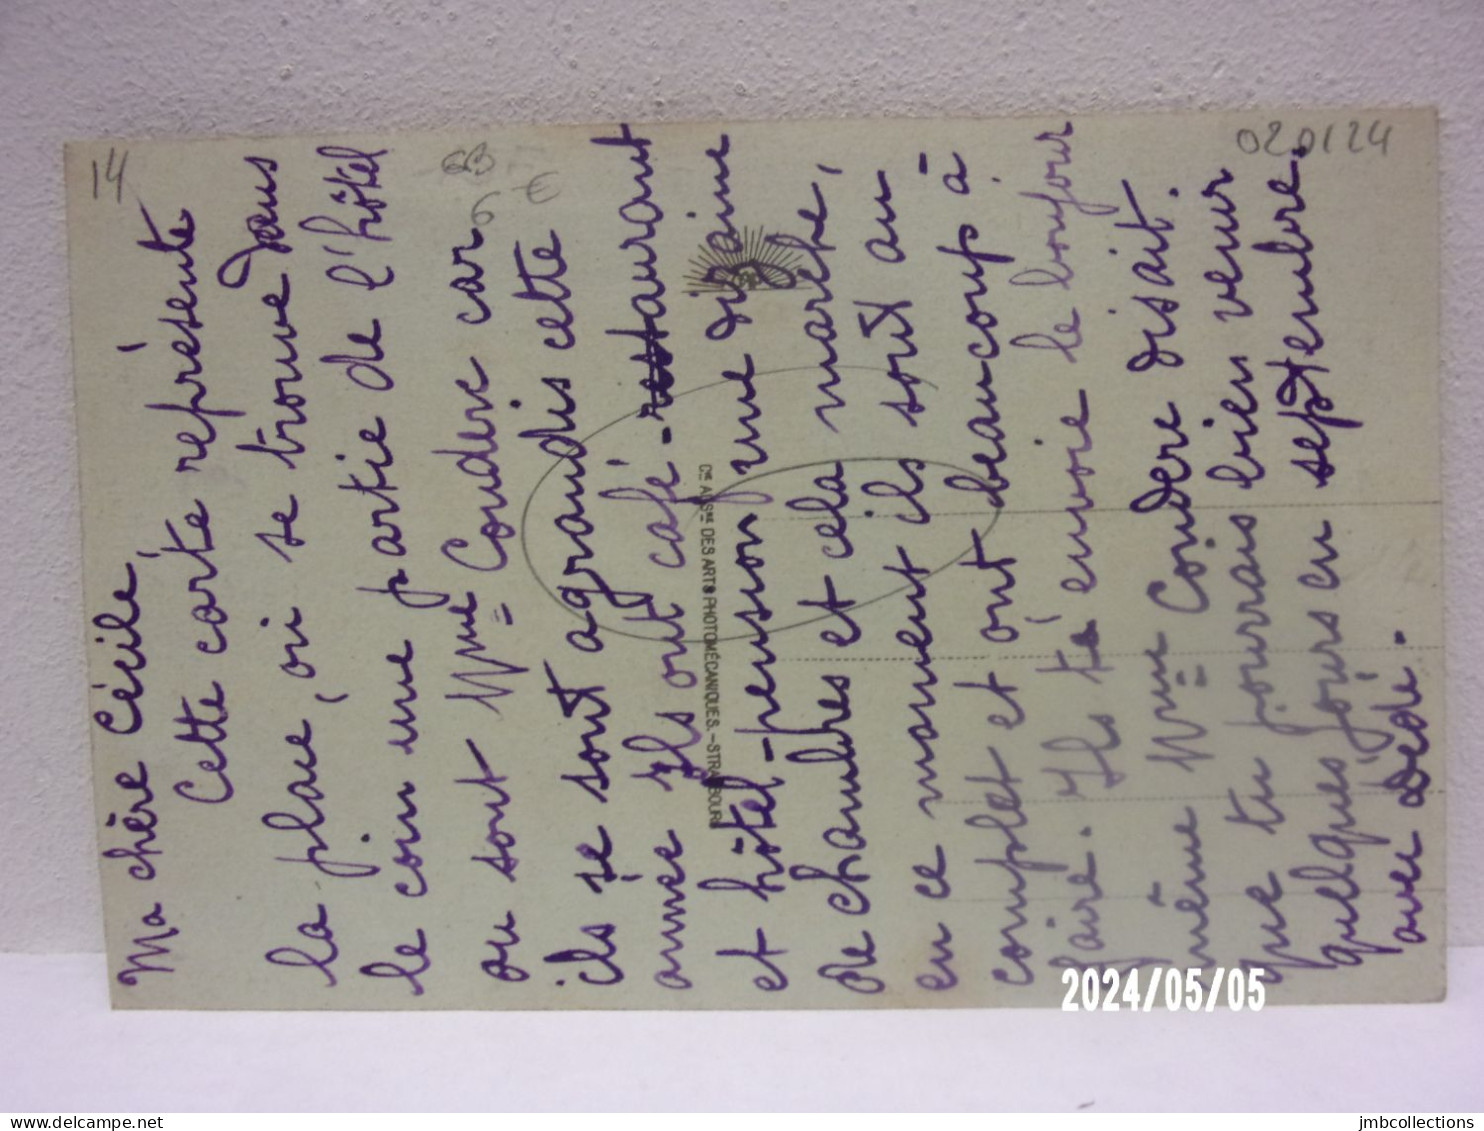 14
6 €
020124
Ma chère Cécile,
Cette carte représente
la place, où se trouve dans
le coin une partie de l'hôtel
ou sont Mme Couderc car
ils se sont agrandis cette
année Ils ont café-restaurant
et hôtel-pension une dizaine
de chambres et cela marche,
en ce moment ils sont au
complet et ont beaucoup à
faire. Ils te envoie le bonjour
même Mme Couderc disait.
que tu pourrais bien venir
quelques jours en septembre.
avec Dédé.
Cie ALSne DES ARTS PHOTOMÉCANIQUES.-STRASBOURG
2024/05/05
delcampe.net
jmbcollections